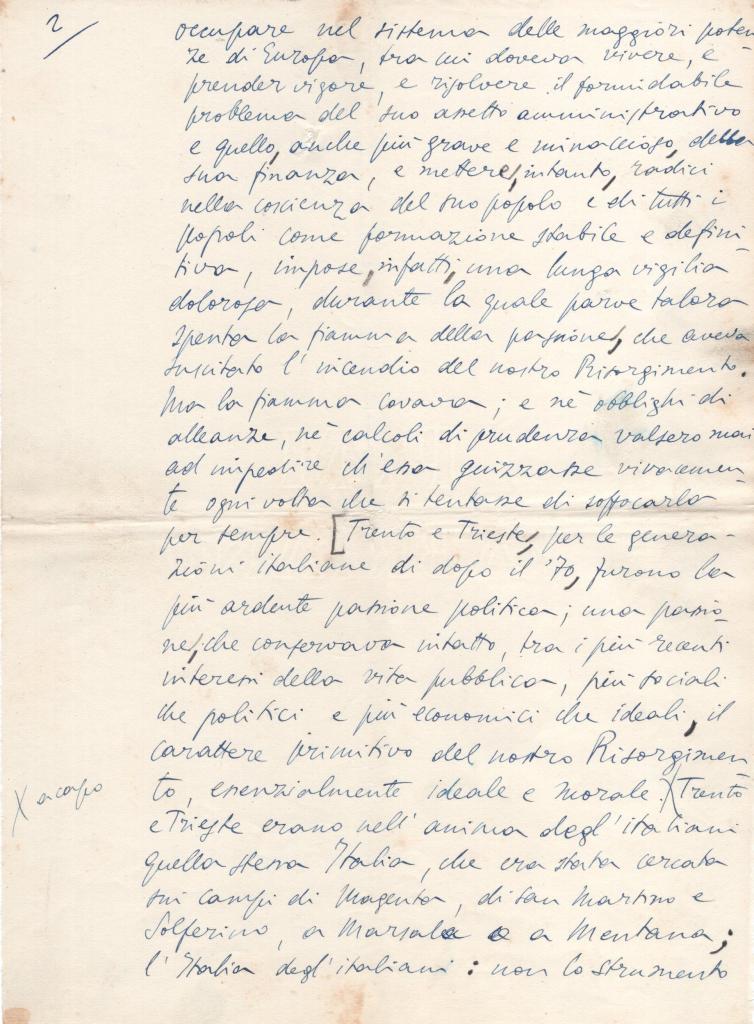 2
occupare nel sistema delle maggiori poten-
ze di Europa, tra cui doveva vivere, e
prender vigore, e risolvere il formidabile
problema del suo assetto amministrativo
e quello, anche più grave e minaccioso, della
sua finanza, e mettere, intanto, radici
nella coscienza del suo popolo e di tutti i
popoli come formazione stabile e defini-
tiva, impose, infatti, una lunga vigilia
dolorosa, durante la quale parve talora
spenta la fiamma della passione, che aveva
suscitato l'incendio del nostro Risorgimento.
Ma la fiamma covava; e nè obblighi di
alleanze, nè calcoli di prudenza valsero mai
ad impedire ch'essa guizzasse vivacemen-
te ogni volta che si tentasse di soffocarla
per sempre. [Trento e Trieste, per le genera-
zioni italiane di dopo il '70, furono la
più ardente passione politica; una passio-
ne, che conservava intatto, tra i più recenti
interessi della vita pubblica, più sociali
che politici e più economici che ideali, il
carattere primitivo del nostro Risorgimen-
X a capo
to, essenzialmente ideale e morale. X Trento
e Trieste erano nell'anima degl'italiani
quella stessa Italia, che era stata cercata
sui campi di Magenta, di San Martino e
Solferino, a Marsala e a Mentana;
l'Italia degl'italiani: non lo strumento